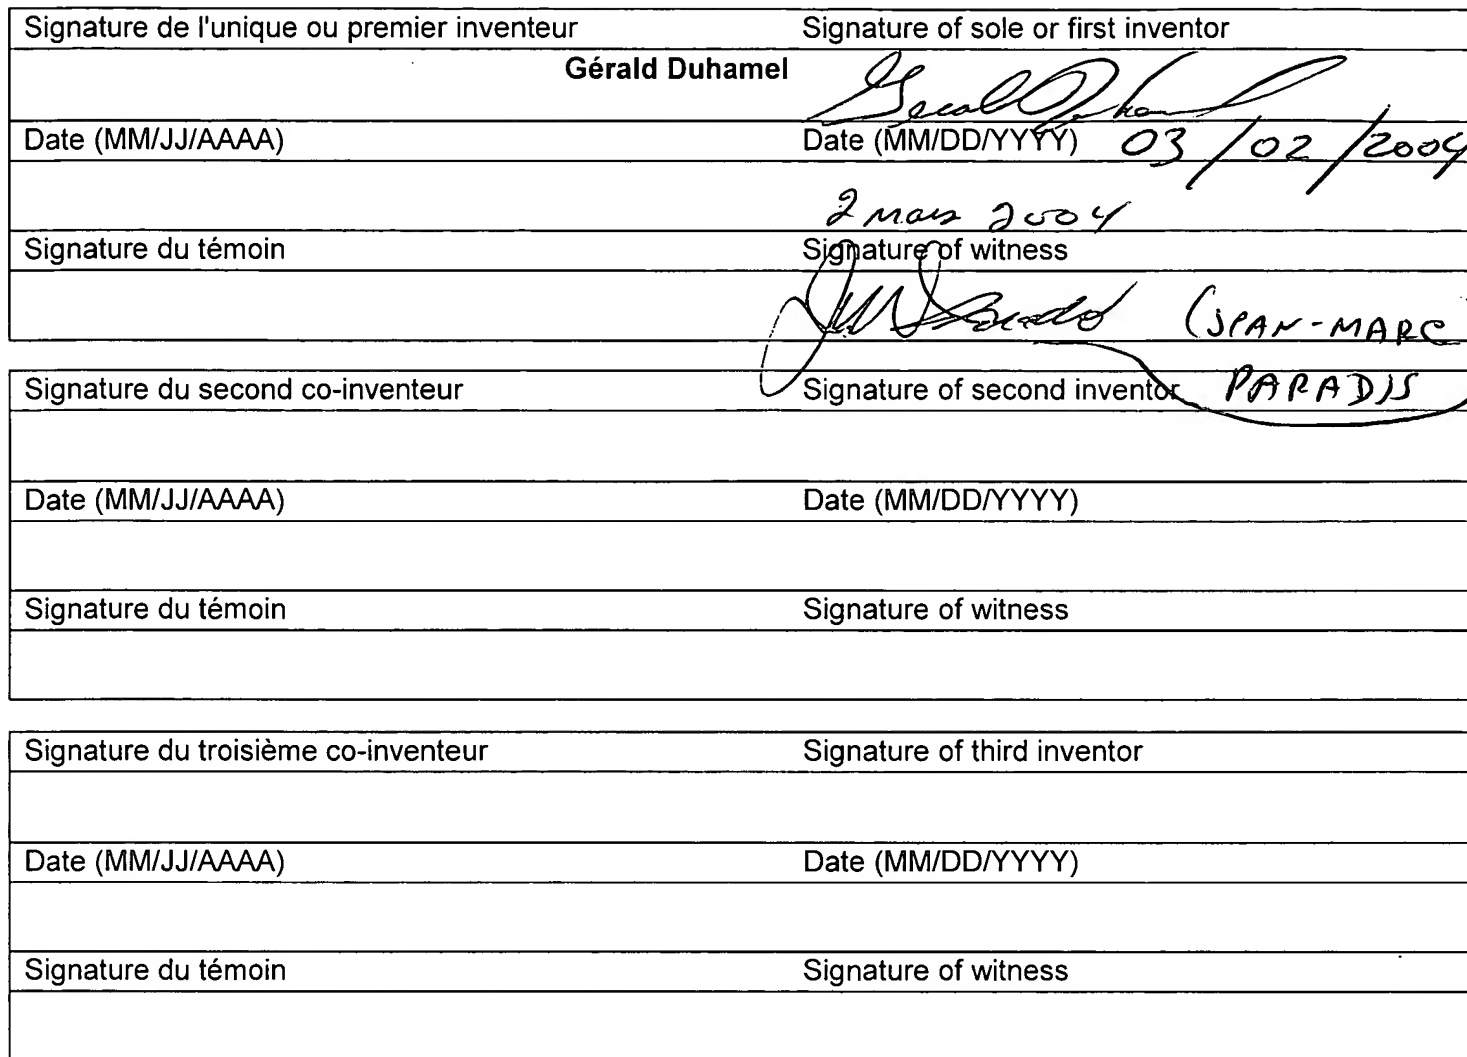 Signature de l'unique ou premier inventeur Signature of sole or first inventor
Gérald Duhamel
Date (MM/JJ/AAAA) Date (MM/DD/YYYY) 03/02/2004
2 mars 2004
Signature du témoin Signature of witness
(JEAN-MARC
PARADIS
Signature du second co-inventeur Signature of second inventor
Date (MM/JJ/AAAA) Date (MM/DD/YYYY)
Signature du témoin Signature of witness
Signature du troisième co-inventeur Signature of third inventor
Date (MM/JJ/AAAA) Date (MM/DD/YYYY)
Signature du témoin Signature of witness